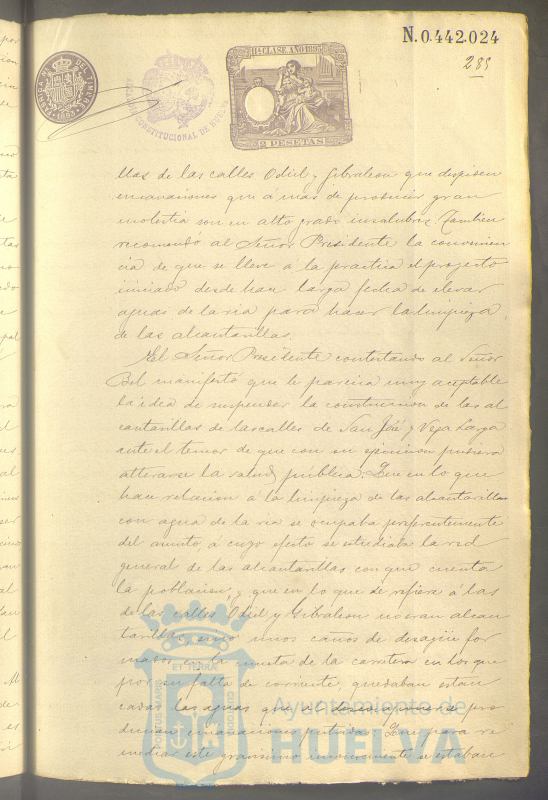 N.0.442.024
288
11ª CLASE AÑO 1893
FABRICA N. DEL TIMBRE
1893
CONSTITUCIONAL DE HUELVA
2 PESETAS
llas de las calles Odiel y Gibraleon que despiden
emanaciones que á mas de producir gran
molestia son en alto grado insalubres. Tambien
recomendó al Señor Presidente la convenien
cia de que se lleve á la practica el proyecto
iniciado desde han larga fecha de elevar
aguas de la ria para hacer la limpieza
de las alcantarillas.
El Señor Presidente contestando al Señor
Bel manifestó que le parecia muy aceptable
la idea de suspender la construccion de las al
cantarillas de las calles de San José y Vega Larga
ante el temor de que con su ejecucion pudiera
alterarse la salud pública: Que en lo que
hace relacion á la limpieza de las alcantarillas
con agua de la ria se ocupaba preferentemente
del asunto, á cuyo efecto se estudiaba la red
general de las alcantarillas con que cuenta
la poblacion, y que en lo que se refiere á las
de las calles Odiel y Gibraleon no eran alcan
tarillas, sino unos caños de desagüe for
mados en la cuneta de la carretera en los que
por su falta de corriente, quedaban estan
cadas las aguas que al descomponerse pro
ducian emanaciones putridas. Que para re
mediar este gravisimo inconveniente se estaban
PORTUS MARIS
ET TERRAE
CUSTODIA
Ayuntamiento de
HUELVA